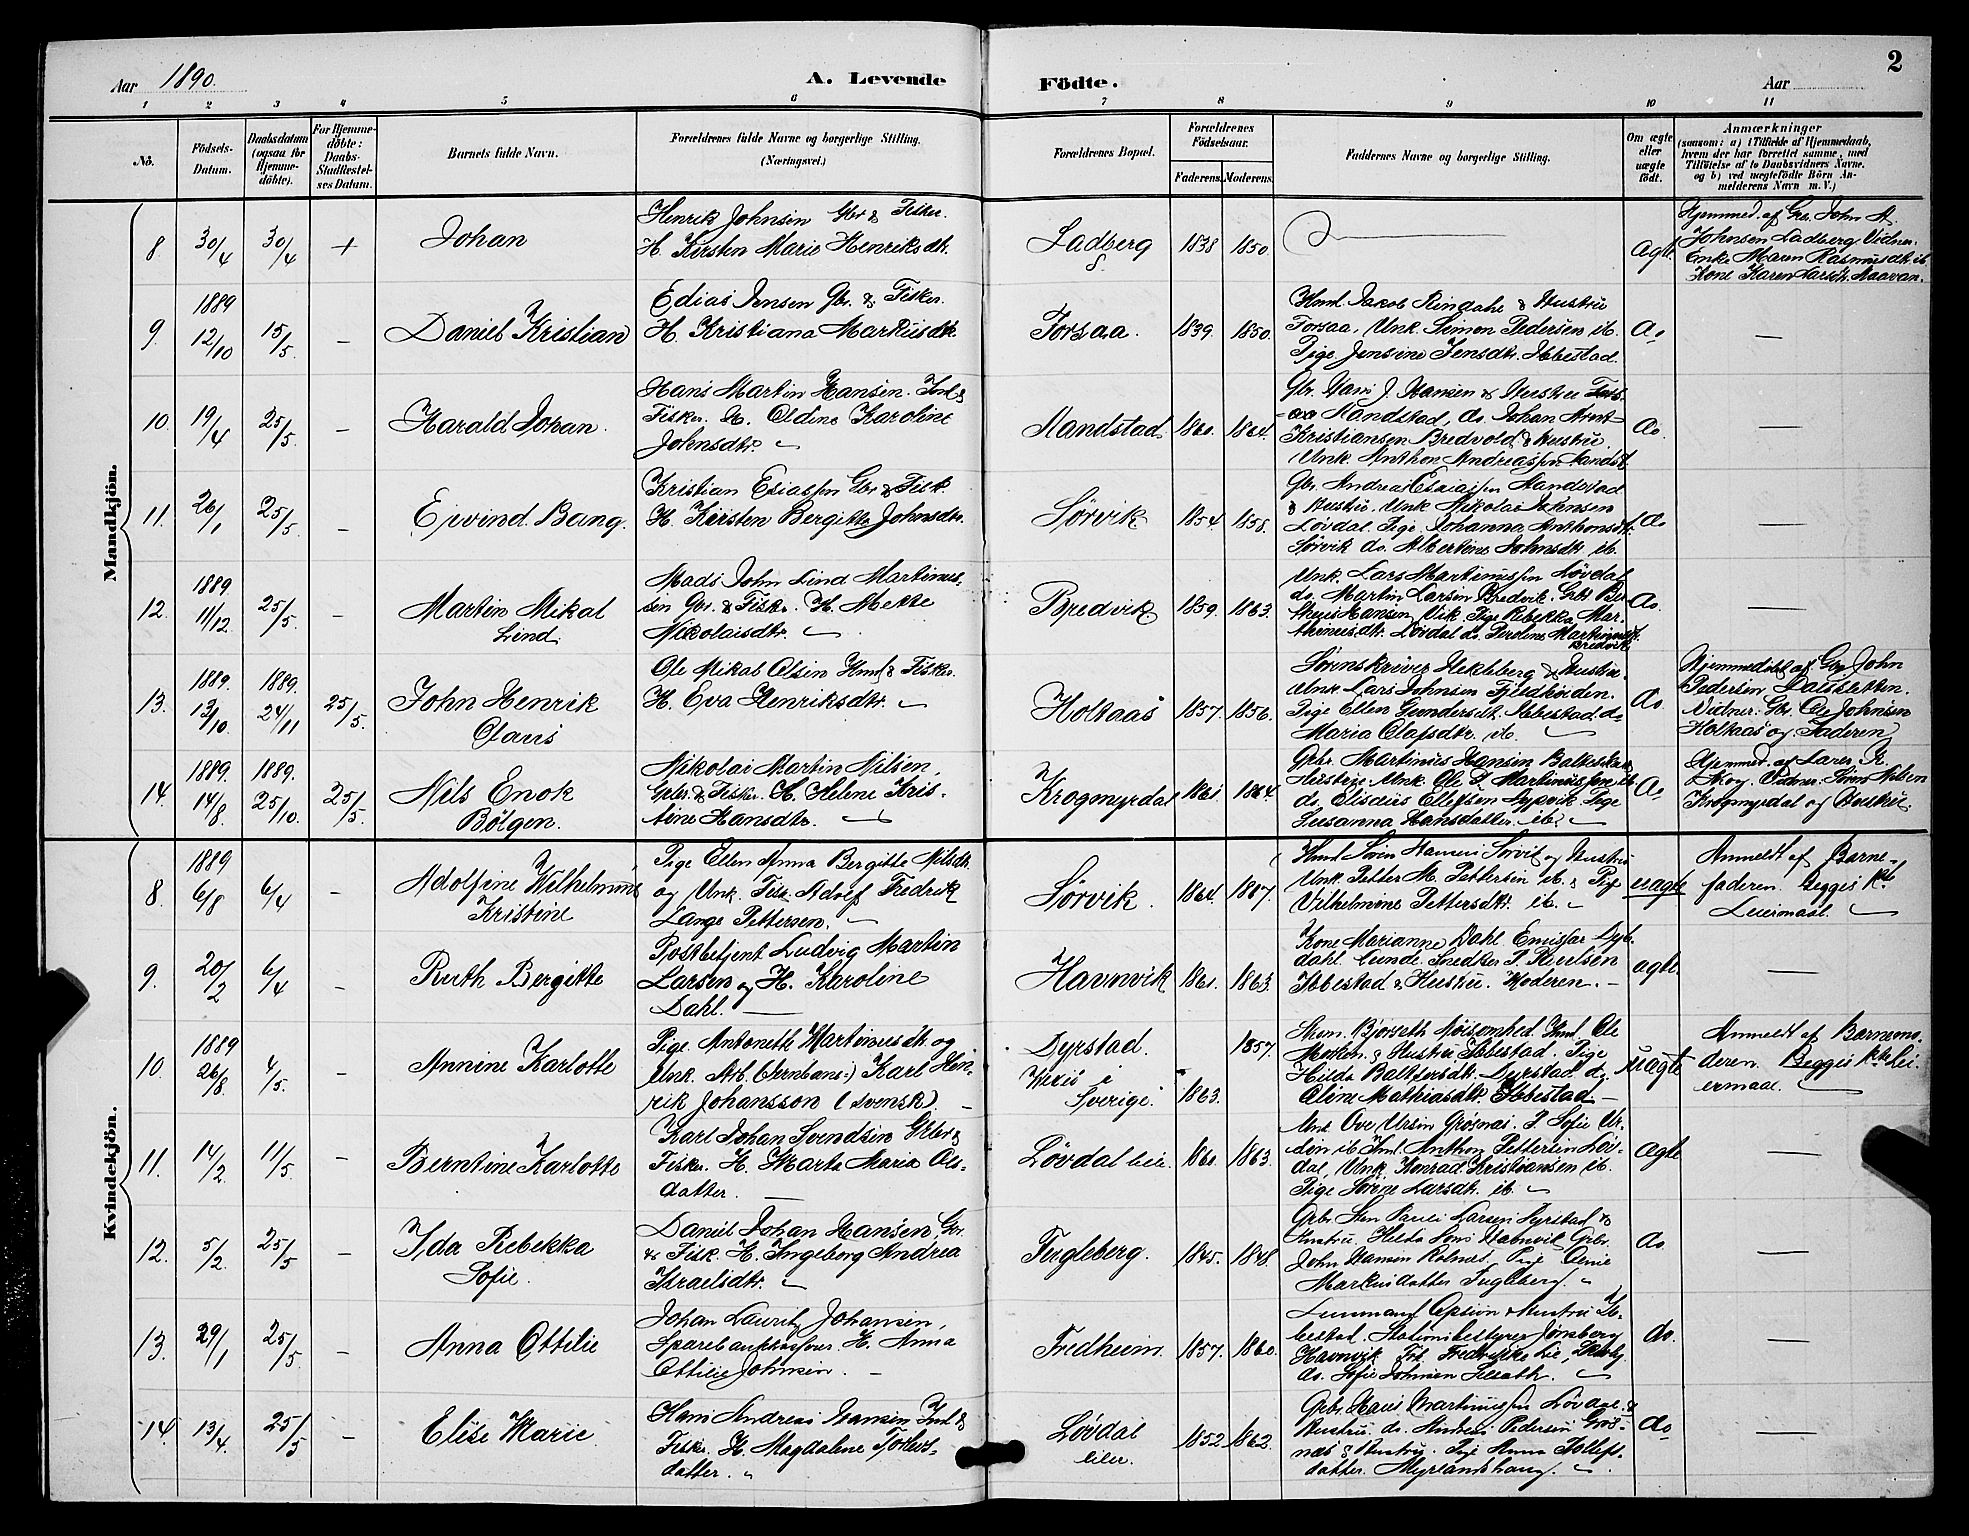 Aar 1890.
A. Levende
Födte.
Aar
2
1 2 3 4 5 6 7 8 9 10 11
No.
Födsels-
Datum.
Daabsdatum
(ogsaa for
Hjemme-
döbte).
For Hjemme-
döbte:
Daabs-
Stadfestel-
ses Datum.
Barnets fulde Navn.
Forældrenes fulde Navne og borgerlige Stilling.
(Næringsvei.)
Forældrenes Bopæl.
Forældrenes
Födselsaar.
Faderens. Moderens.
Faddernes Navne og borgerlige Stilling.
Om ægte
eller
uægte
födt.
Anmærkninger
(saasom: a) i Tilfælde af Hjemmedaab,
hvem der har forrettet samme, med
Tilföielse af to Daabsvidners Navne,
og b) ved uægtefödte Börn An-
melderens Navn m. V.)
Mandkjön.
8 30/4 30/4 + Johan
Henrik Johnsen Gbr & Fisker.
H. Kirsten Marie Henriksdt.
Ladberg 1838 1850. Ægte
Hjemmed. af Gbr. John A.
Johnsen Ladberg. Vidner:
Enke Maren Rasmusdt. ib.
Kone Karen Larsdt. Maavan.
9. 1889 12/10 15/5. – Daniel Kristian
Edias Jensen Gbr. & Fisker.
H. Kristiana Markusdt.
Forsaa. 1839. 1850.
Inml. Jakob Rindahl & Hustru
Forsaa, Unk. Simon Pedersen ib.
Pige Jensine Jensdtr. Ibbestad.
do. —
10. 19/4 25/5. – Harald Johan.
Hans Martin Hansen. Inl &
Fisker. H. Oldine Karoline
Johnsdtr.
Mandstad 1860. 1864.
Gbr. Hans J. Hansen & Hustru
Mandstad, do. Johan Arnt
Kristiansen Bredvold & Hustru.
Unk. Anthon Andreassen
do. —
11. 26/1 25/5. – Ejvind Bang.
Kristian Esiassen Gbr & Fisk.
H. Kirsten Bergitte Johnsdtr.
Sørvik 1854. 1858.
Gbr. Andreas Esaiassen Mandstad
& Hustru. Unk Nikolai Jakensen
Løvdal. Pige Johanna Anthonsdtr.
Sørvik do. Albertine Johnsdt. ib.
do —
12. 1889. 11/12. 25/5. – Martin Mikal
Lind.
Mads John Lind Martinus-
sen Gbr. & Fisker. H. Mette
Nikolaisdtr.
Bredvik 1859. 1863.
Unk. Lars Martinussen Løvdal
do. Martin Larsen Bredvik.
Hansen Vik Pige Rebekka Mar-
thinusdtr. Løvdal do. Peroline Martinusdt.
Bredvik
do. —
13. 1889. 13/10. 1889. 24/11 25/5. John Henrik
Olaus
Ole Mikal Olsen Inml & Fisker.
H. Eva Henriksdtr.
Holtaas 1857. 1856.
Sørenskriver Hekleberg & Hustru
Unk. Lars Johnsen Fjeldbörden.
Pige Ellen Gundersdt. Ibbestad. do
Maria Olafsdtr. ib.
do.
Hjemmedöbt af Gbr John
Pedersen Dalsletten.
Vidner: Gbr. Ole Johnsen
Holtaas og Faderen
14. 1889. 14/8. 1889. 25/10. 25/5. Nils Enok
Bölgen.
Nikolai Martin Nilsen,
Gbr. & Fisker. H. Helene Kris-
tine Hansdtr.
Krogmyrdal 1861. 1864.
Gbr. Martinus Hansen
Hustru. Unk. Ole Martinussen ib.
do. Elisæus Ellefsen Pige
Susanna Hansdatter. ib.
do
Hjemmed. af Lærer K.
Vidner: Nilsen
Krogmyrdal og Hustru.
Kvindekjön.
8. 1889 6/8 6/4 – Adolfine Wilhelmine
Kristine
Pige Ellen Anna Bergitte Nilsdt.
og Unk. Fisk. Adolf Fredrik
Lange Pettersen.
Sørvik. 1864. 1867.
Inml. Sören Hansen Sørvik og Hustru
Unk. Petter M. Pettersen ib. & Pige
Vilhelmine Pettersdtr. ib.
uægte
Anmeldt af Barne-
faderen. Begges 1ste
Leiermaal.
9. 20/2 6/4 – Ruth Bergitte
Postbetjent Ludvig Martin
Larsen og H. Karoline
Dahl.
Havnvik 1861. 1863.
Kone Marianne Dahl. Emissær
dahl. Snedker P.
Ibbestad & Hustru. Moderen.
ægte. —
10. 1889 26/8. 4/5. – Annine Karlotte
Pige. Antonette Martinusdt og
Unk. Arb. (Jernbane-) Karl Hen-
rik Johansson (svensk).
Dyrstad. 1857.
Wexiö i
Sverige. 1863.
Bjorseth Nöisomhed. Inml. Ole
& Hustru Ibbestad. Pige
Hilda Baltsersdtr. Dyrstad do.
Oline Mathiasdtr. Ibbestad
uægte
Anmeldt af Barnemo-
deren. Begges 1ste Lei-
ermaal.
11. 14/2. 11/5. – Berntine Karlotte
Karl Johan Svendsen Gbr &
Fisker. H. Marta Maria Ols-
datter.
Lövdal leie. 1860. 1863.
Unk Ove Ursin Grøsnæs. P. Sofie Ur-
sin ib Inml. Anthon Pettersen Löv-
dal, Unk. Konrad Kristiansen ib.
Pige Sörine Larsdt. ib.
ægte —
12. 5/2. 25/5 – Ida Rebekka
Sofie.
Daniel Johan Hansen, Gbr.
& Fisk. H. Ingeborg Andrea
Israelsdtr.
Fugleberg. 1845. 1848.
Gbr. Sten Pauli Larsen Dyrstad &
Hustru. Hilda Havnvik Gbr.
John Hansen Rolnæs. Pige
Markusdatter Fugleberg.
do. —
13. 29/1 25/5. – Anna Ottilie
Johan Lauritz Johansen,
Sparebankkasserer. H. Anna
Ottilie Johnsen.
Fredheim 1857. 1860.
Lensmand & Hustru Ib-
bestad. Stationsbestyrer Jønsberg
Havnvik Frk. Fredrikke Lie,
do. Sofie Johnsen
do. —
14. 13/4. 25/5 – Elise Marie.
Hans Andreas Hansen Inl &
Fisker. H. Magdalene Tollefs-
datter.
Lövdal
leie. 1852 1862.
Gbr. Hans Martinussen Lövdal &
Hustru. do. Andreas Pedersen Grös-
næs & Hustru. Pige Anna Tollefs-
datter. Myrlandshaug.
do —